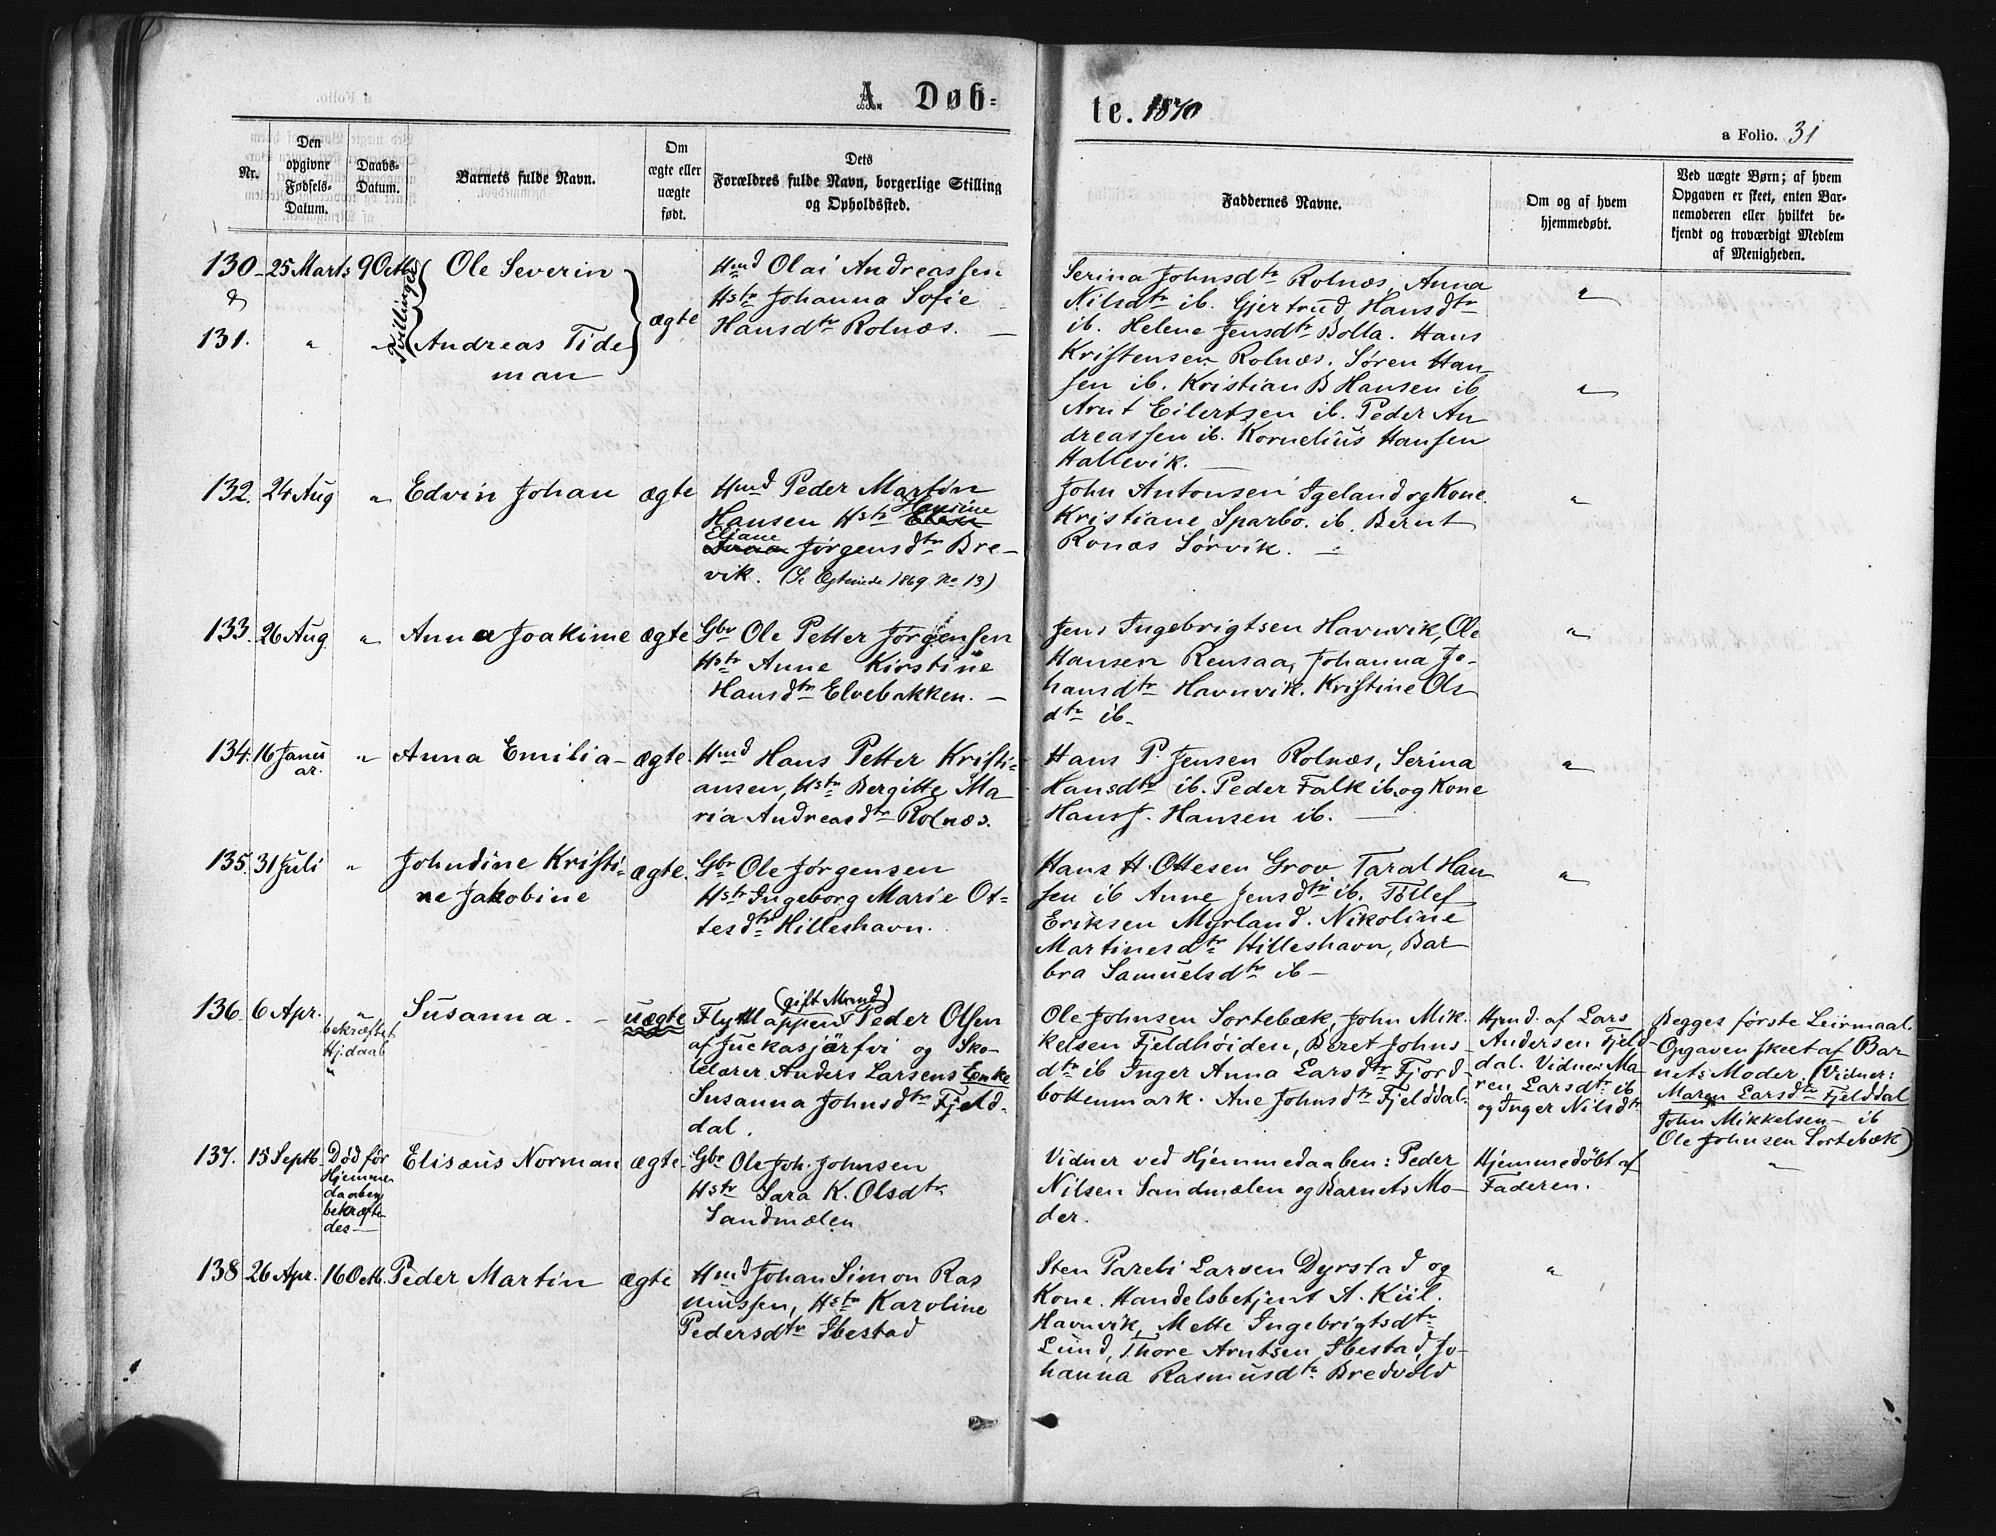 A. Døb=
te. 1870
a Folio. 31
Nr.
Den opgivne Fødsels-Datum.
Daabs-Datum.
Barnets fulde Navn.
Om ægte eller uægte født.
Dets Forældres fulde Navn, borgerlige Stilling og Opholdssted.
Faddernes Navne.
Om og af hvem hjemmedøbt.
Ved uægte Børn; af hvem Opgaven er skeet, enten Barnemoderen eller hvilket bekjendt og troværdigt Medlem af Menigheden.
130 25 Marts 9 Octb Ole Severin
&
131. " " Andreas Tide
man
Tvillinger
ægte
Hmd Olai Andreassen
Hstr Johanna Sofie
Hansdtr Rolnæs. —
Serina Johnsdtr Rolnæs, Anna
Nilsdtr ib. Gjertrud Hansdtr
ib. Helene Jensdtr Bolla. Hans
Kristensen Rolnæs. Søren Han-
sen ib. Kristian B Hansen ib
Arnt Eilertsen ib. Peder An-
dreassen ib. Kornelius Hansen
Hallevik. —
"
"
132. 24 Aug " Edvin Johan ægte
Hmd Peder Martin
Hansine
Hansen Hstr Elen
Eliane
Jørgensdtr Bre-
vik. (Se Egteviede 1869 No 13)
John Antonsen Igeland og Kone
Kristiane Sparbo. ib. Bernt
Ronæs Sørvik. —
"
133. 26 Aug " Anna Joakime ægte
Gbr Ole Petter Jørgensen
Hstr Anne Kirstine
Hansdtr Elvebakken. —
Jens Ingebrigtsen Havnvik, Ole
Hansen Rensaa, Johanna Jo-
hansdtr Havnvik. Kristine Ols
dtr ib.
"
134. 16 Janu
ar. " Anna Emilia ægte.
Hmd Hans Petter Kristi-
ansen, Hstr Bergitte Ma-
ria Andreasdtr Rolnæs.
Hans P. Jensen Rolnæs, Serina
Hansdtr ib. Peder Falk ib. og Kone
Hans J. Hansen ib. —
"
135. 31 Juli " Johndine Kristi-
ne Jakobine ægte.
Gbr Ole Jørgensen
Hstr Ingeborg Marie Ot-
tesdtr Hilleshavn.
Hans H. Ottesen Grov. Taral Han
sen ib Anne Jensdtr ib. Tollef
Eriksen Myrland. Nikoline
Martinesdtr Hilleshavn, Bar-
bra Samuelsdtr ib —
"
136. 6 Apr. "
bekræftet
Hj.daab
"
Susanna. — uægte
(gift Mand)
Flytlappen Peder Olsen
af Juckasjärfvi og Sko-
lelærer Anders Larsens Enke
Susanna Johnsdtr Fjeld-
dal.
Ole Johnsen Sortebæk, John Mik-
kelsen Fjeldhøiden, Beret Johns-
dtr ib Inger Anna Larsdtr Fjord-
bottenmark. Ane Johnsdtr Fjelddal.
Hjmd. af Lars
Andersen Fjeld-
dal. Vidner Ma-
ren Larsdtr ib
og Inger Nilsdtr
Begges første Leirmaal.
Opgaven skeet af Bar-
nets Moder. (Vidner:
Maren Larsdtr Fjelddal
John Mikkelsen — ib
Ole Johnsen Sortebæk)
137. 15 Septb. Død før
Hjemme
daaben
bekræfte
des —
Elisæus Norman ægte
Gbr Ole Joh. Johnsen
Hstr Sara K. Olsdtr
Sandmælen
Vidner ved Hjemmedaaben: Peder
Nilsen Sandmælen og Barnets Mo-
der.
Hjemmedøbt af
Faderen.
"
138 26 Apr. 16 Octb. Peder Martin ægte
Hmd Johan Simon Ras
mussen, Hstr Karoline
Pedersdtr Ibestad
Sten Pareli Larsen Dyrstad og
Kone. Handelsbetjent A. Kiil.
Havnvik, Mette Ingebrigtsdtr
Lund, Thore Arntsen Ibestad, Jo-
hanna Rasmusdtr Bredvold
"